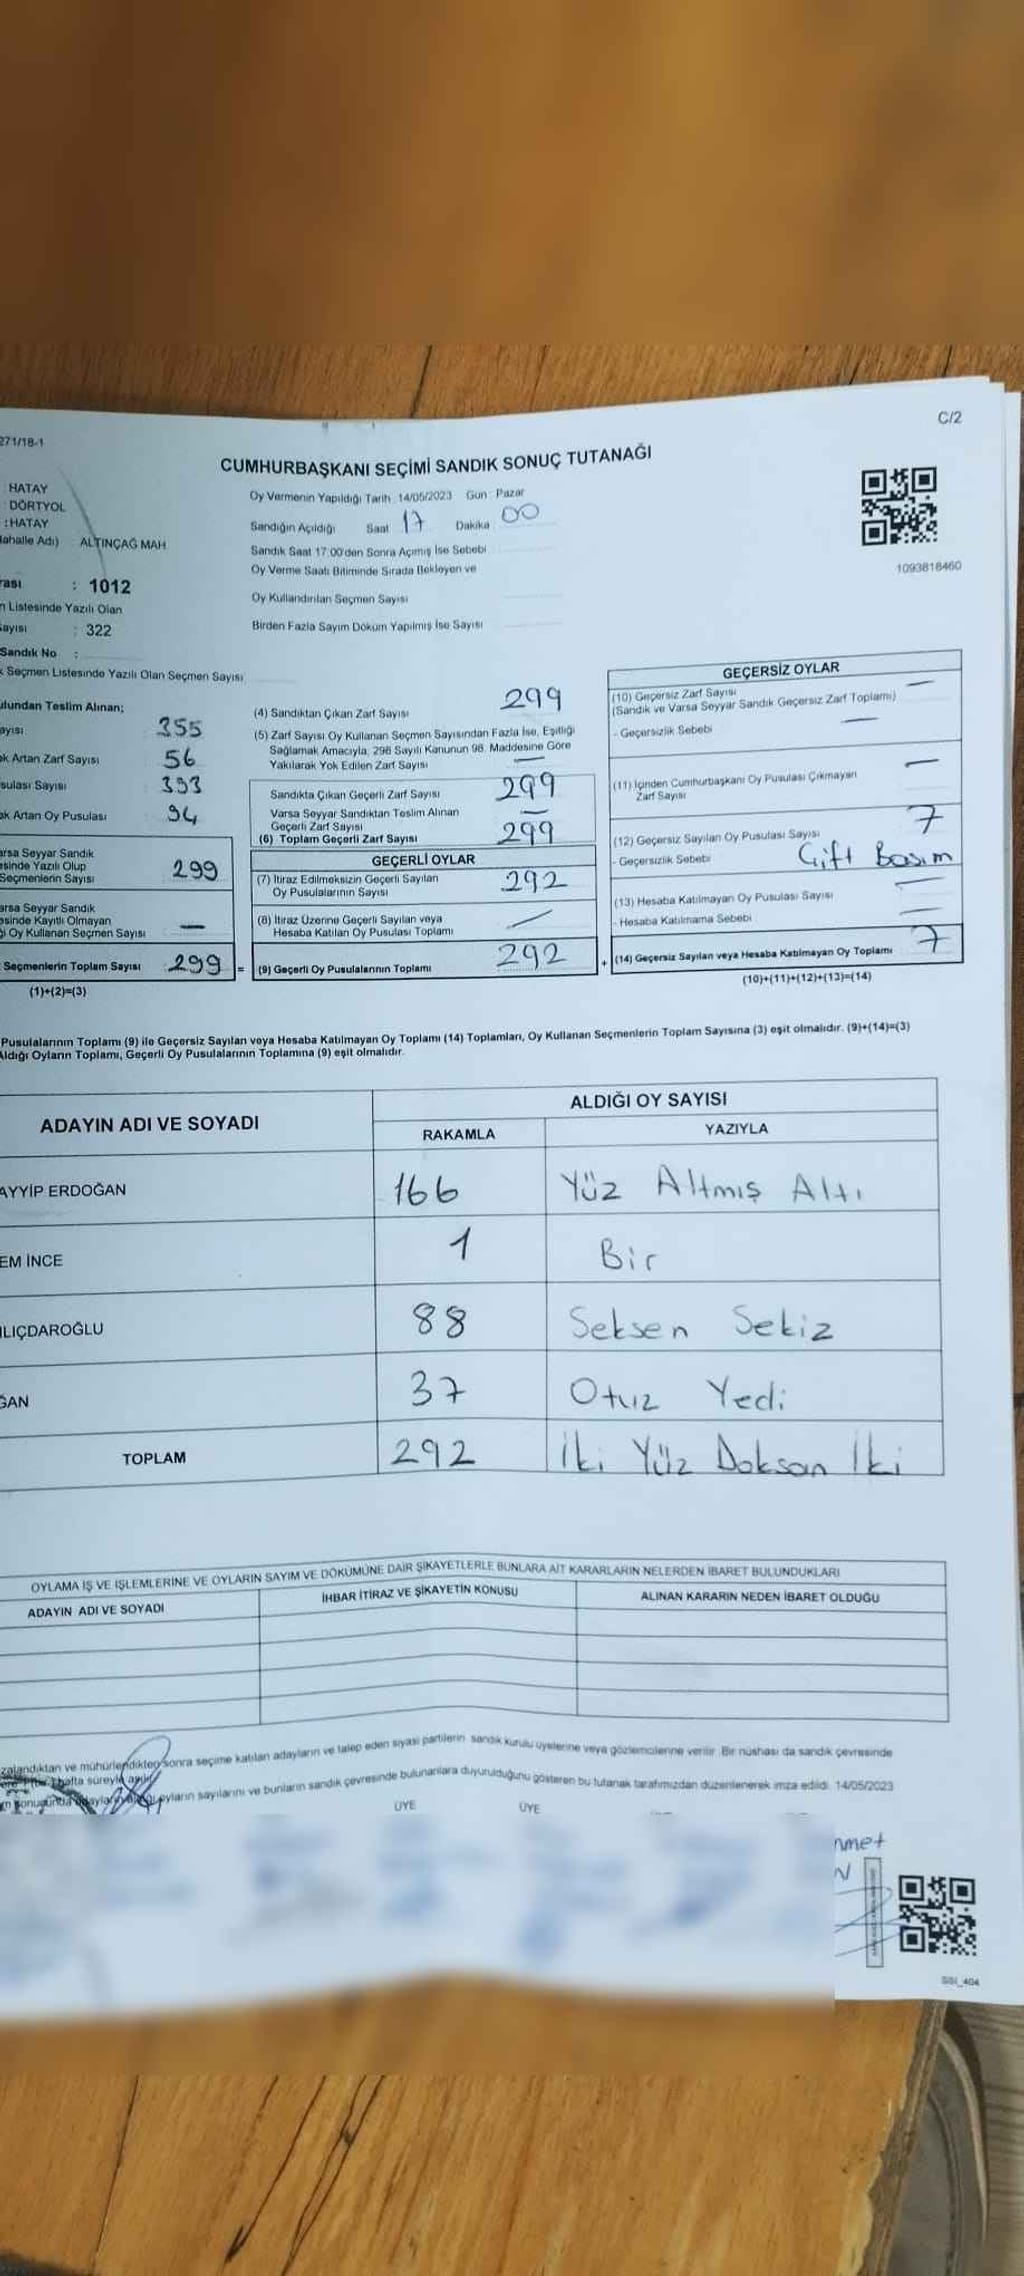 C/2
271/18-1
CUMHURBAŞKANI SEÇİMİ SANDIK SONUÇ TUTANAĞI
: HATAY
: DÖRTYOL
: HATAY
Mahalle Adı) ALTINÇAĞ MAH
rası : 1012
n Listesinde Yazılı Olan
Sayısı : 322
Sandık No :
k Seçmen Listesinde Yazılı Olan Seçmen Sayısı
Oy Vermenin Yapıldığı Tarih : 14/05/2023 Gün : Pazar
Sandığın Açıldığı Saat 17 Dakika 00
Sandık Saat 17:00'den Sonra Açılmış İse Sebebi
Oy Verme Saati Bitiminde Sırada Bekleyen ve
Oy Kullandırılan Seçmen Sayısı
Birden Fazla Sayım Döküm Yapılmış İse Sayısı
1093818460
ulundan Teslim Alınan;
ayısı 355
ak Artan Zarf Sayısı 56
sulası Sayısı 393
ak Artan Oy Pusulası 94
arsa Seyyar Sandık
esinde Yazılı Olup
Seçmenlerin Sayısı 299
arsa Seyyar Sandık
esinde Kayıtlı Olmayan
i Oy Kullanan Seçmen Sayısı —
Seçmenlerin Toplam Sayısı 299 =
(1)+(2)=(3)
(4) Sandıktan Çıkan Zarf Sayısı 299
(5) Zarf Sayısı Oy Kullanan Seçmen Sayısından Fazla İse, Eşitliği
Sağlamak Amacıyla; 298 Sayılı Kanunun 98. Maddesine Göre
Yakılarak Yok Edilen Zarf Sayısı —
Sandıkta Çıkan Geçerli Zarf Sayısı 299
Varsa Seyyar Sandıktan Teslim Alınan
Geçerli Zarf Sayısı —
(6) Toplam Geçerli Zarf Sayısı 299
GEÇERLİ OYLAR
(7) İtiraz Edilmeksizin Geçerli Sayılan
Oy Pusulalarının Sayısı 292
(8) İtiraz Üzerine Geçerli Sayılan veya
Hesaba Katılan Oy Pusulası Toplamı —
(9) Geçerli Oy Pusulalarının Toplamı 292 +
GEÇERSİZ OYLAR
(10) Geçersiz Zarf Sayısı —
(Sandık ve Varsa Seyyar Sandık Geçersiz Zarf Toplamı)
- Geçersizlik Sebebi —
(11) İçinden Cumhurbaşkanı Oy Pusulası Çıkmayan —
Zarf Sayısı
(12) Geçersiz Sayılan Oy Pusulası Sayısı 7
- Geçersizlik Sebebi Çift Basım
(13) Hesaba Katılmayan Oy Pusulası Sayısı —
- Hesaba Katılmama Sebebi —
(14) Geçersiz Sayılan veya Hesaba Katılmayan Oy Toplamı 7
(10)+(11)+(12)+(13)=(14)
Pusulalarının Toplamı (9) ile Geçersiz Sayılan veya Hesaba Katılmayan Oy Toplamı (14) Toplamları, Oy Kullanan Seçmenlerin Toplam Sayısına (3) eşit olmalıdır. (9)+(14)=(3)
Aldığı Oyların Toplamı, Geçerli Oy Pusulalarının Toplamına (9) eşit olmalıdır.
ADAYIN ADI VE SOYADI ALDIĞI OY SAYISI
RAKAMLA YAZIYLA
AYYİP ERDOĞAN 166 Yüz Altmış Altı
EM İNCE 1 Bir
ILIÇDAROĞLU 88 Seksen Sekiz
ĞAN 37 Otuz Yedi
TOPLAM 292 İki Yüz Doksan İki
OYLAMA İŞ VE İŞLEMLERİNE VE OYLARIN SAYIM VE DÖKÜMÜNE DAİR ŞİKAYETLERLE BUNLARA AİT KARARLARIN NELERDEN İBARET BULUNDUKLARI
ADAYIN ADI VE SOYADI İHBAR İTİRAZ VE ŞİKAYETİN KONUSU ALINAN KARARIN NEDEN İBARET OLDUĞU
zalandıktan ve mühürlendikten sonra seçime katılan adayların ve talep eden siyasi partilerin sandık kurulu üyelerine veya gözlemcilerine verilir. Bir nüshası da sandık çevresinde
hafta süreyle asılır
oyların sayılarını ve bunların sandık çevresinde bulunanlara duyurulduğunu gösteren bu tutanak tarafımızdan düzenlenerek imza edildi. 14/05/2023
ÜYE ÜYE
hmet
N
SSI_404